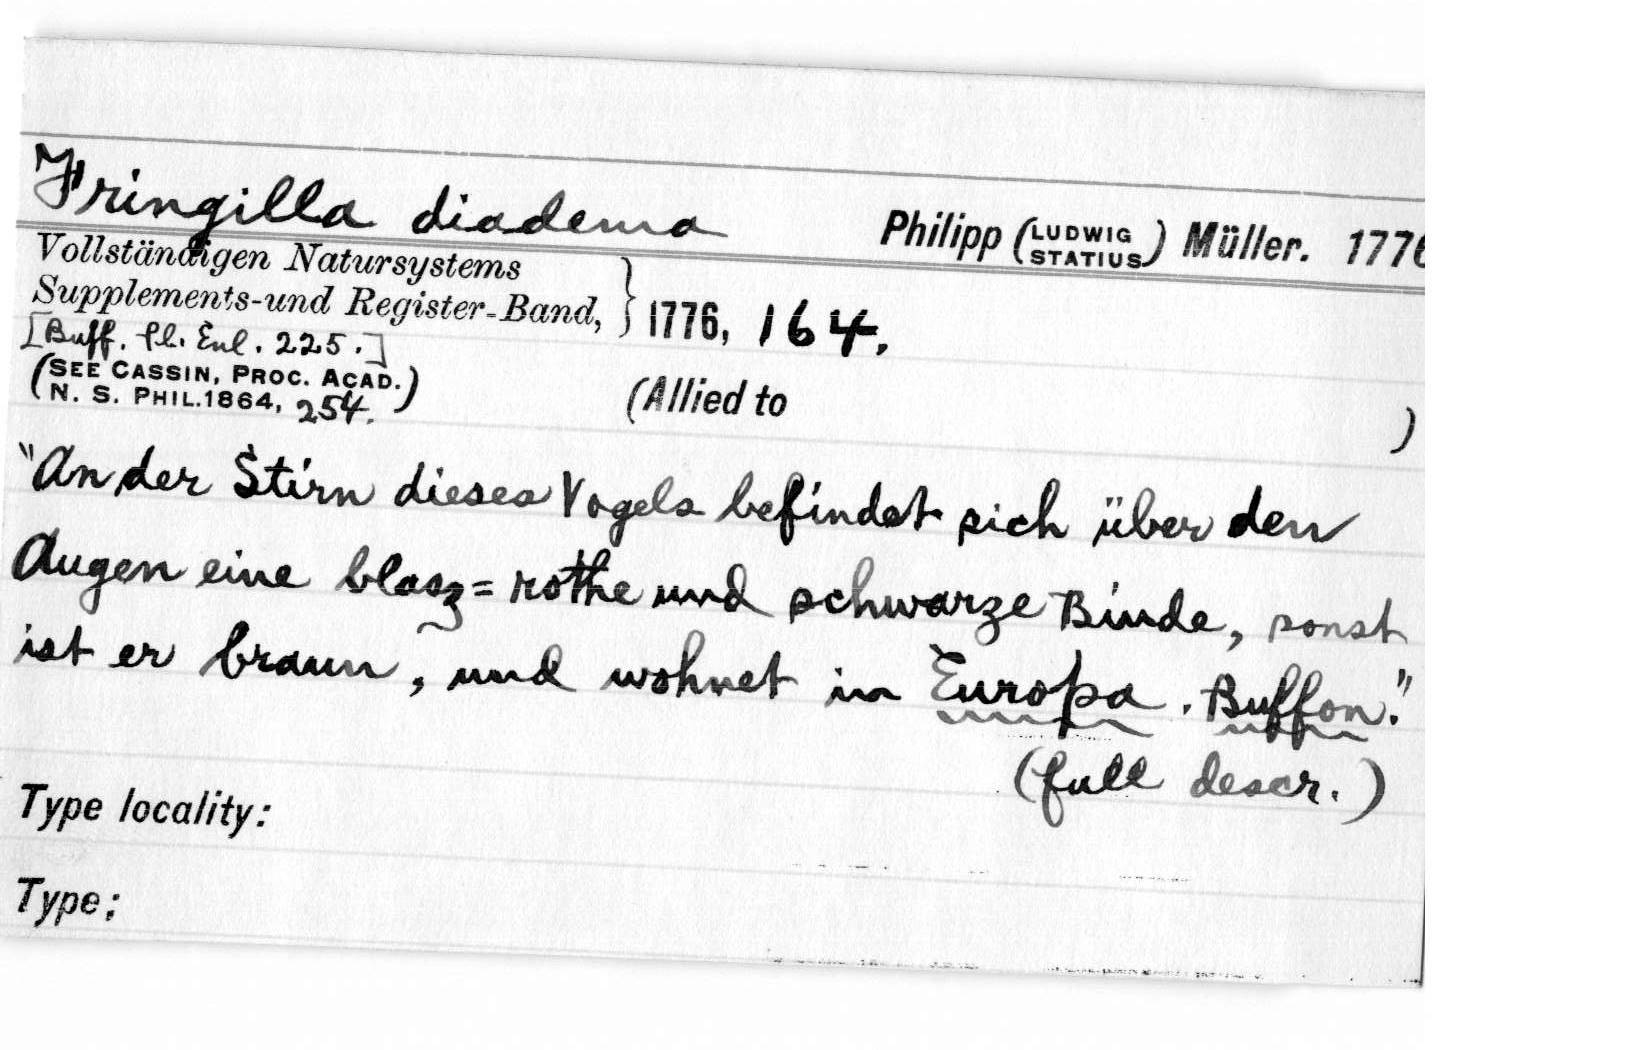 Fringilla diadema Philipp (LUDWIG STATIUS) Müller. 1776
Vollständigen Natursystems
Supplements-und Register-Band, } 1776, 164.
[Buff. Pl. Enl. 225.]
(SEE CASSIN, PROC. ACAD.
N. S. PHIL. 1864, 254.) (Allied to )
"An der Stirn dieses Vogels befindet sich über den
Augen eine blasz=rothe und schwarze Binde, sonst
ist er braun, und wohnet in Europa. Buffon."
(full descr.)
Type locality:
Type: